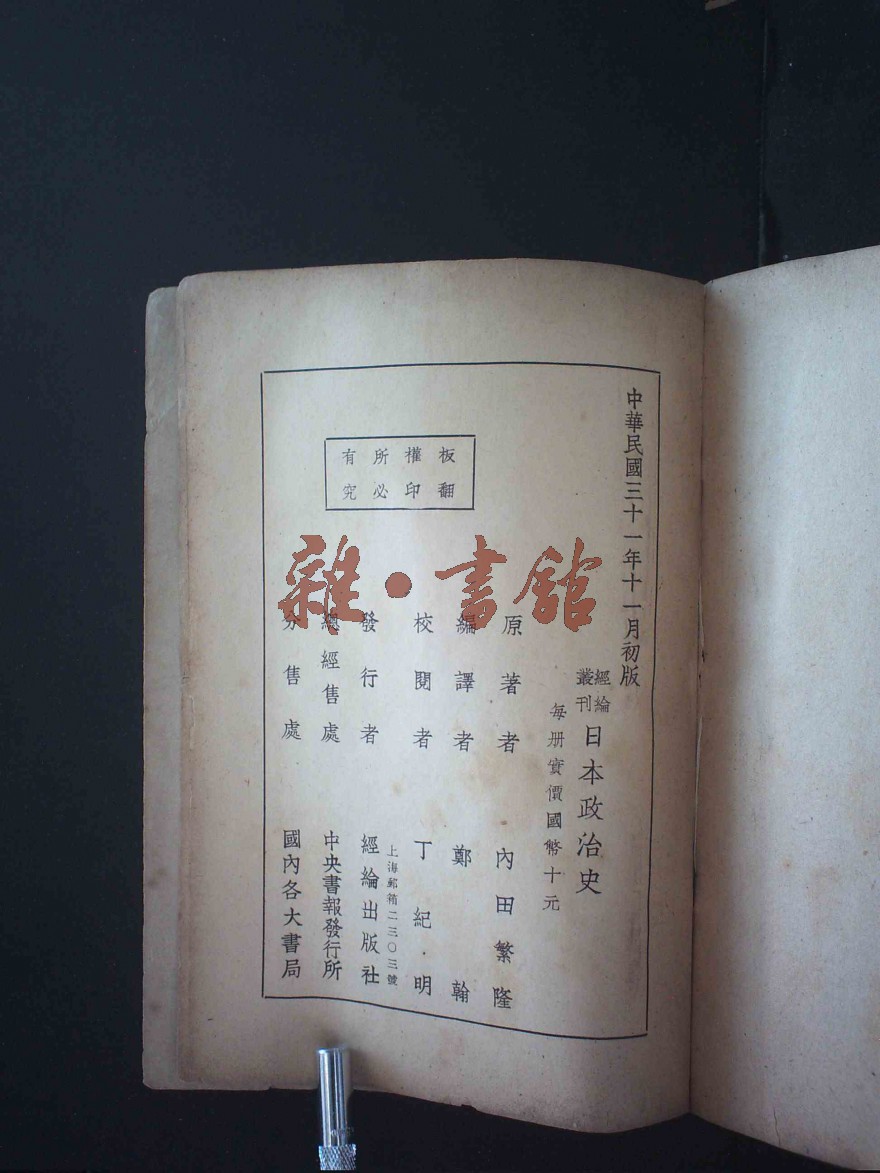 中華民國三十一年十一月初版
經綸叢刊 日本政治史
每册實價國幣十元
原著者 內田繁隆
編譯者 鄭翰
校閱者 丁紀明
上海郵箱二三〇三號
發行者 經綸出版社
總經售處 中央書報發行所
分售處 國內各大書局
板權所有
翻印必究
雜·書館